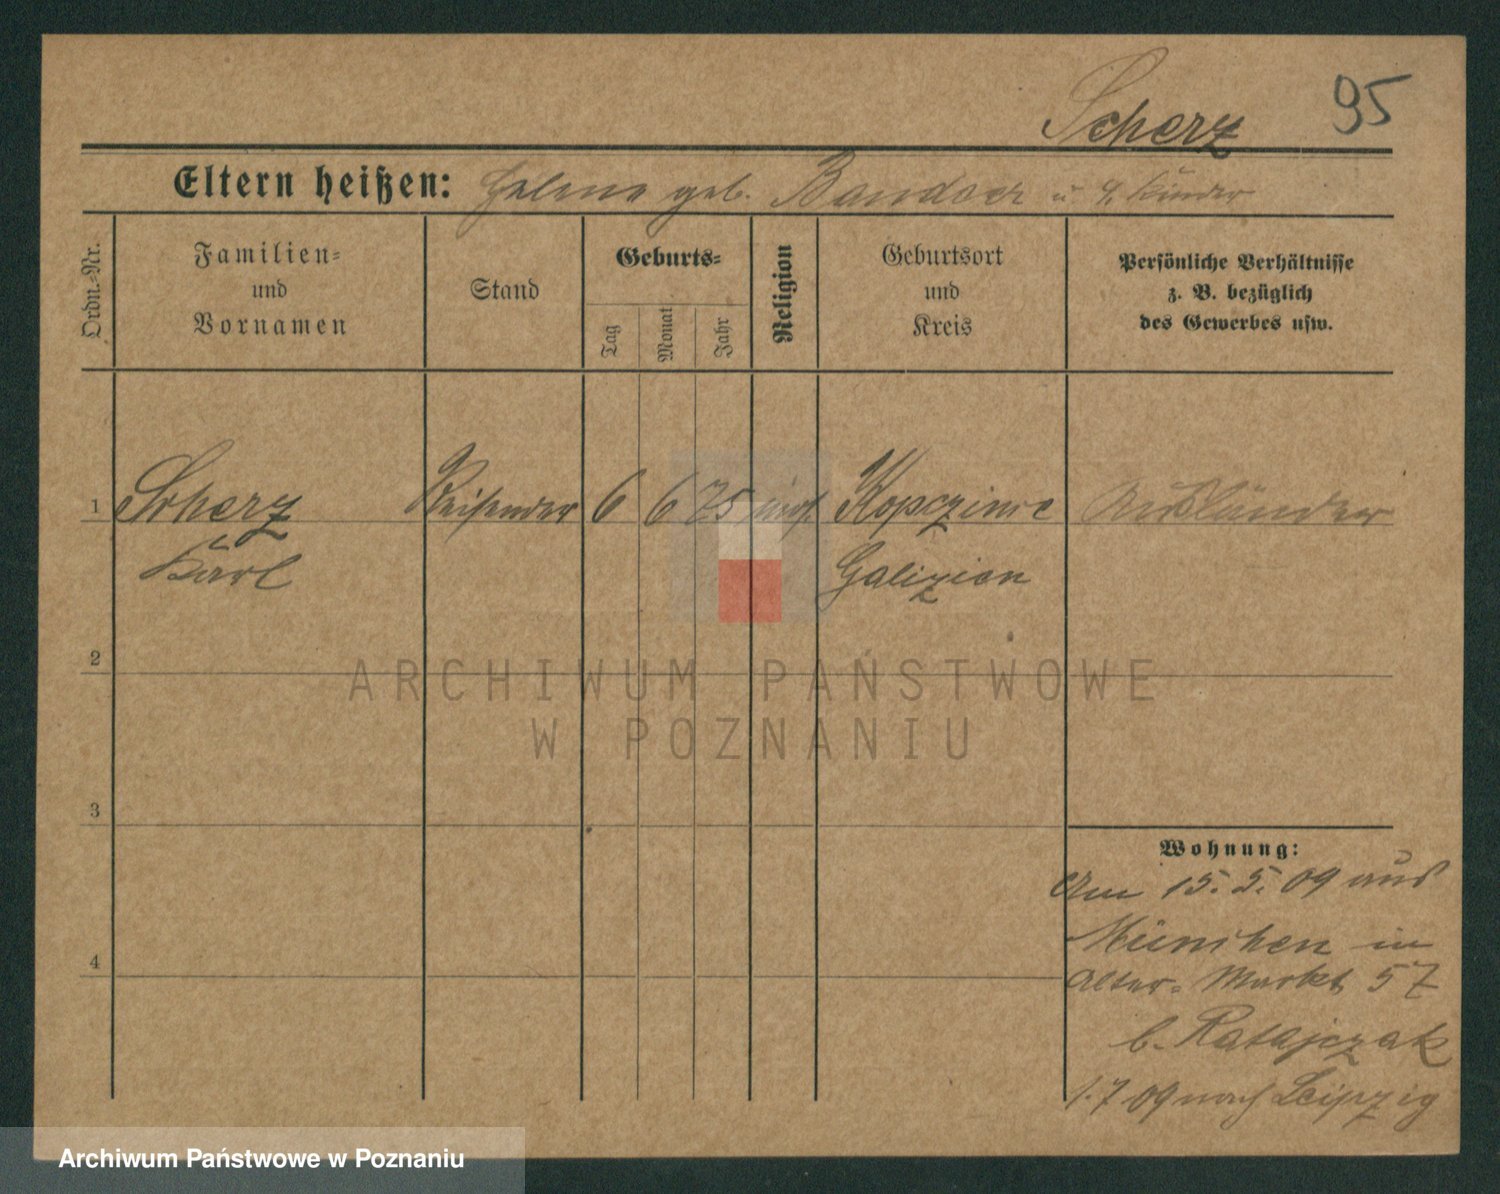 95
Scherz
Eltern heißen: Helene geb. Bandoer u 4 Kinder
Ordn.-Nr.
Familien- und Vornamen
Stand
Geburts-
Tag
Monat
Jahr
Religion
Geburtsort und Kreis
Persönliche Verhältnisse z. B. bezüglich des Gewerbes usw.
1 Scherz Reisender 6 6 75 Ausländer
Karl Galizien
2
3
4
Wohnung:
Am 15. 5. 09 aus
München in
Alter-Markt 57
b. Ratajczak
1.7 09 nach Leipzig
ARCHIWUM PAŃSTWOWE
W POZNANIU
Archiwum Państwowe w Poznaniu